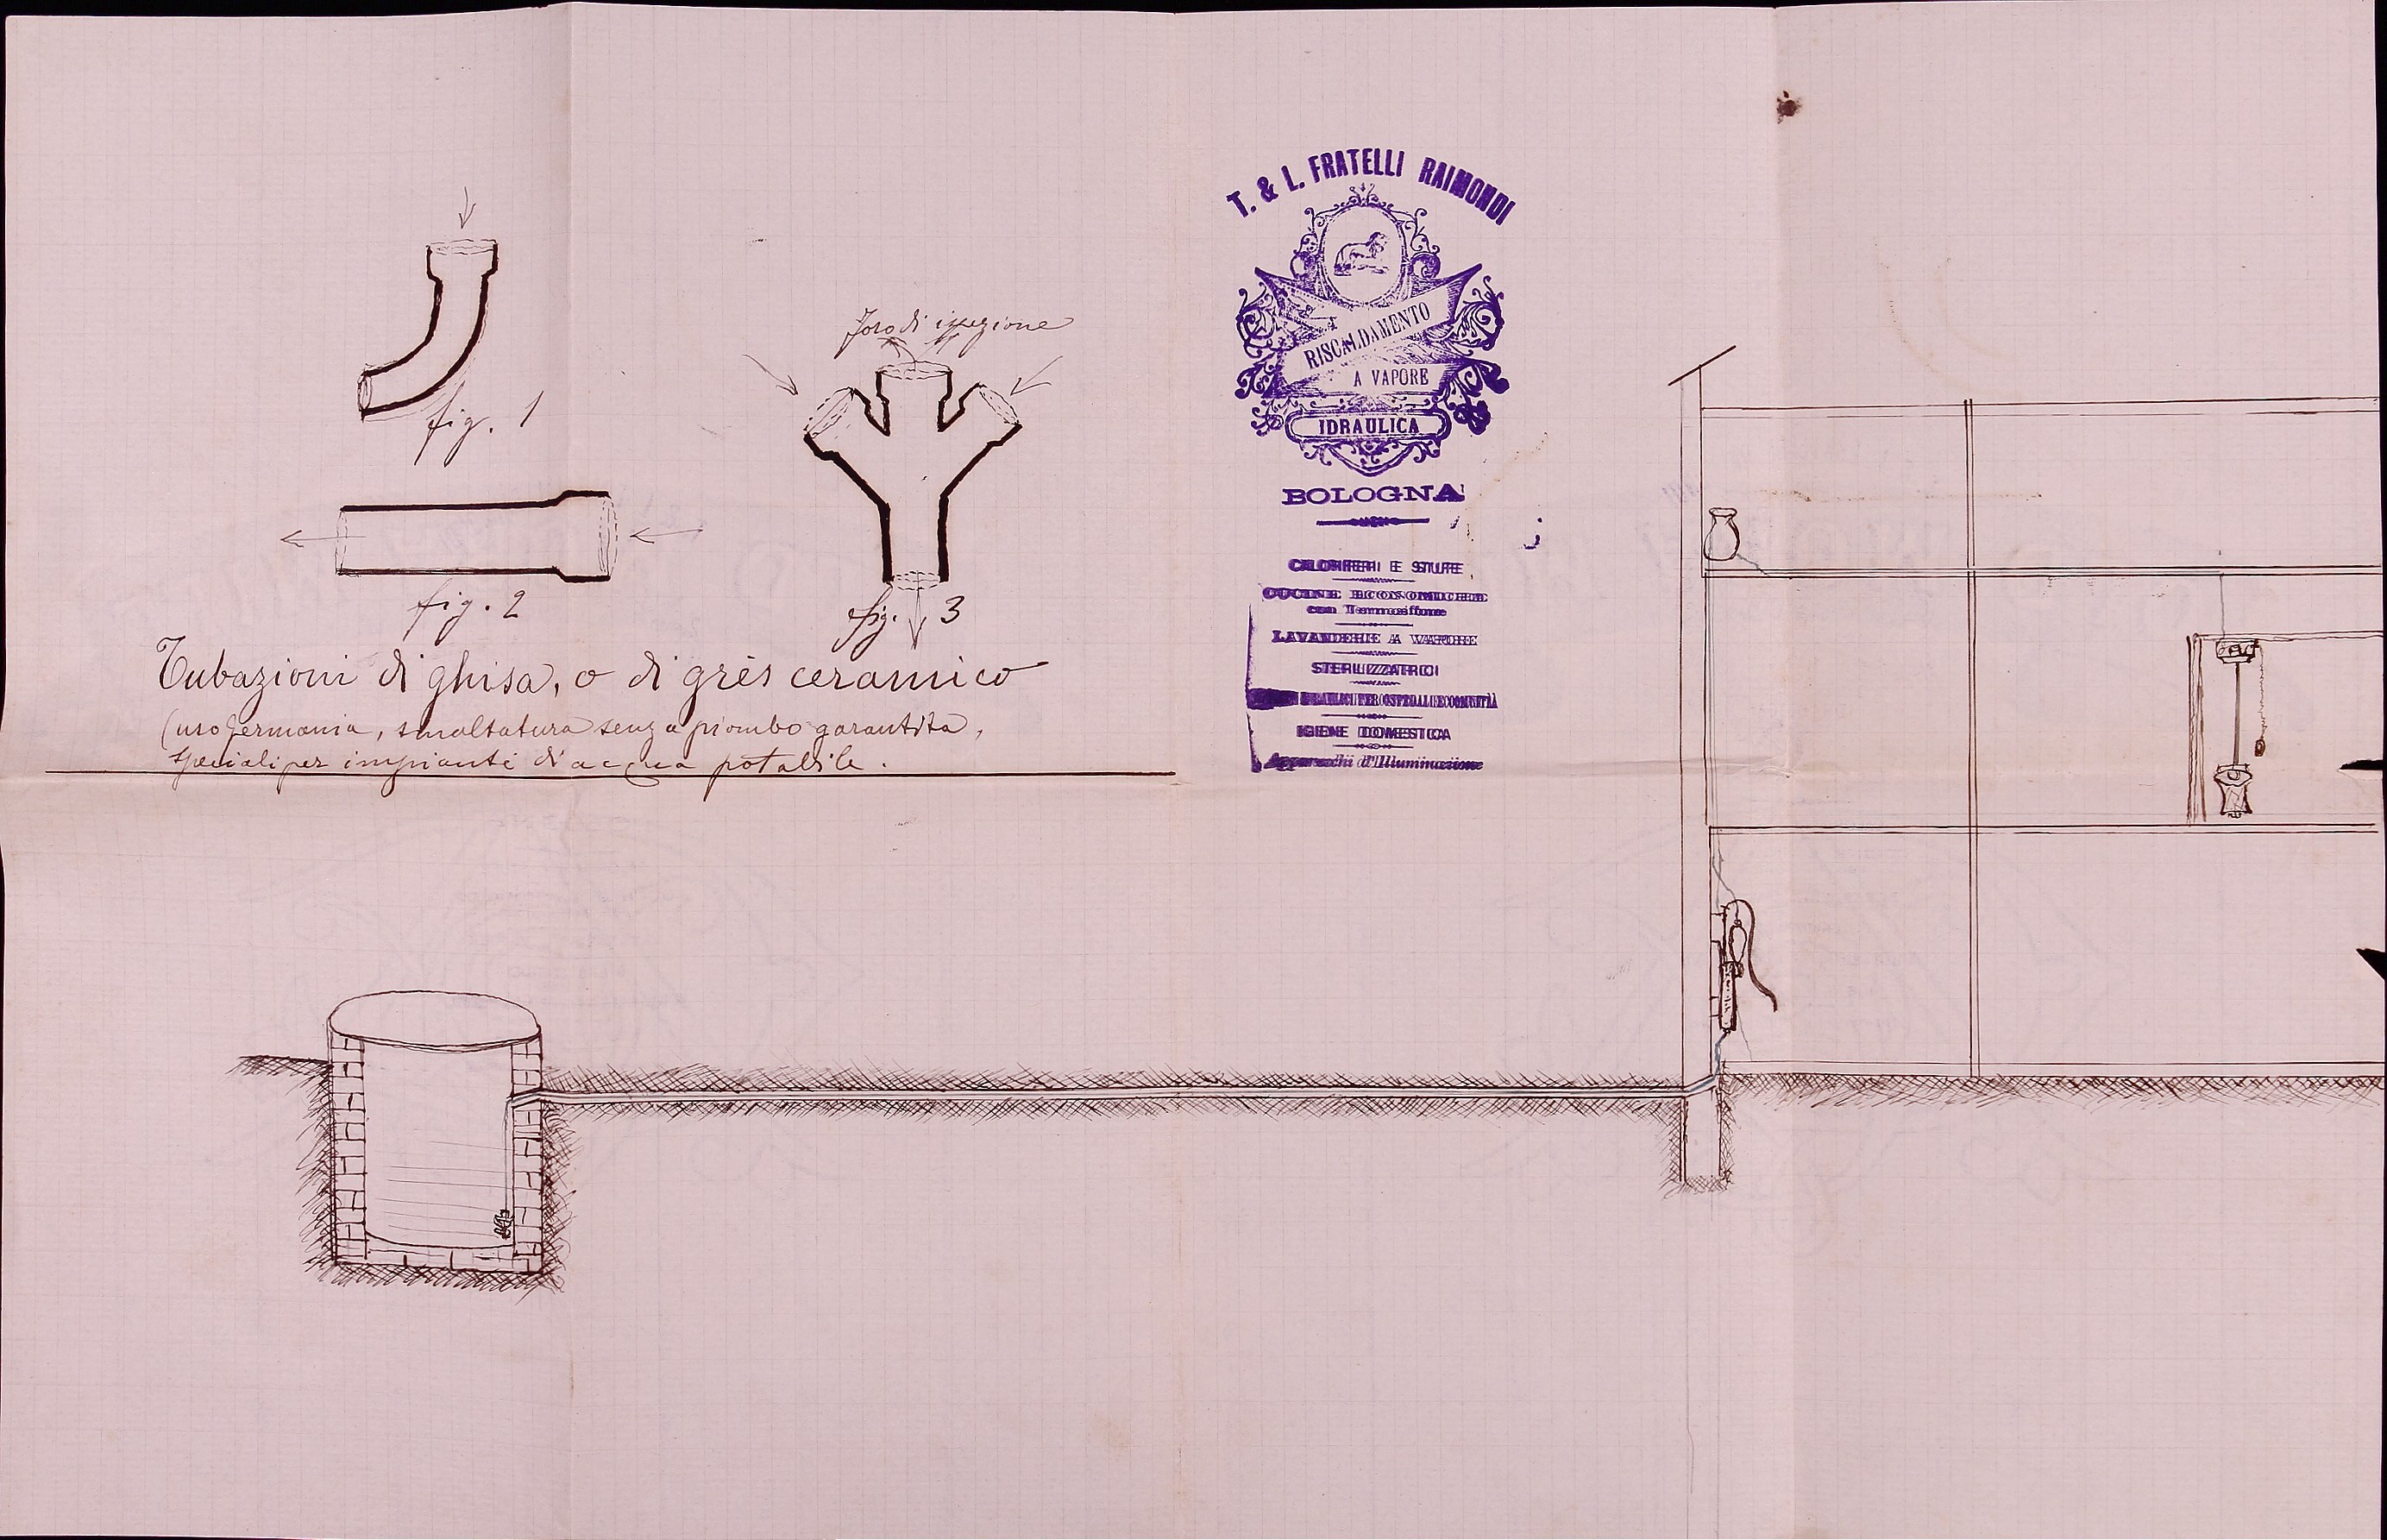 fig. 1
fig. 2
Foro di ispezione
fig. 3
Tubazioni di ghisa, o di grès ceramico
(uso Germania, smaltatura senza piombo garantita,
speciali per impianti di acqua potabile.
T. & L. FRATELLI RAIMONDI
RISCALDAMENTO
A VAPORE
IDRAULICA
BOLOGNA
CALORIFERI E STUFE
CUCINE ECONOMICHE
con Termosifone
LAVANDERIE A VAPORE
STERILIZZATRICI
PER OSPEDALI E COMUNITÀ
IGIENE DOMESTICA
Apparecchi d'Illuminazione